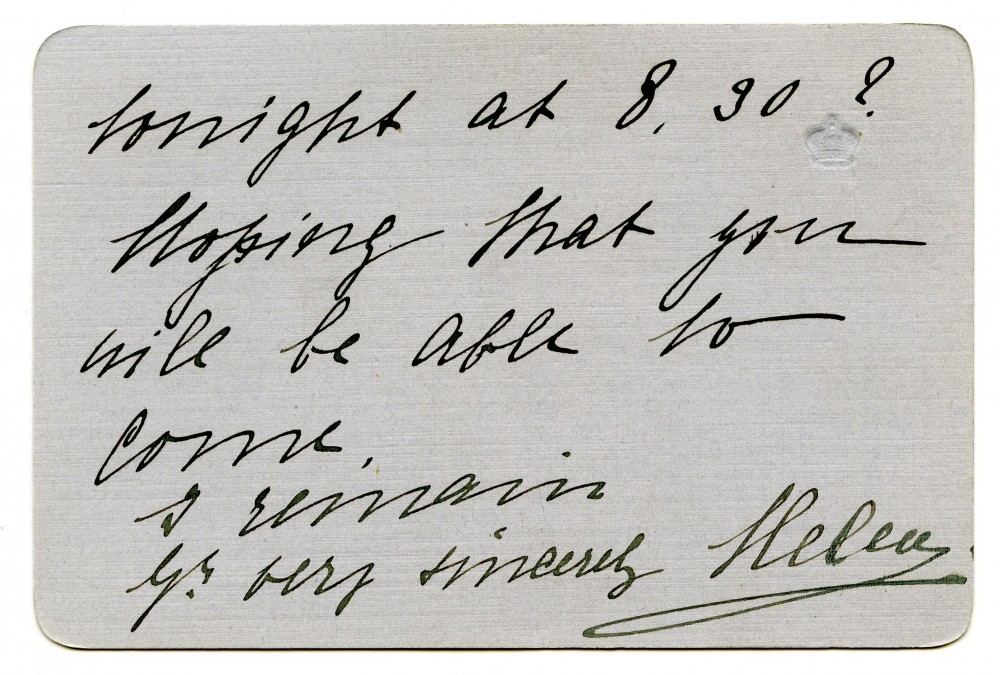 tonight at 8.30?
Hoping that you
will be able to
come.
I remain
Yr. very sincerely Helen.